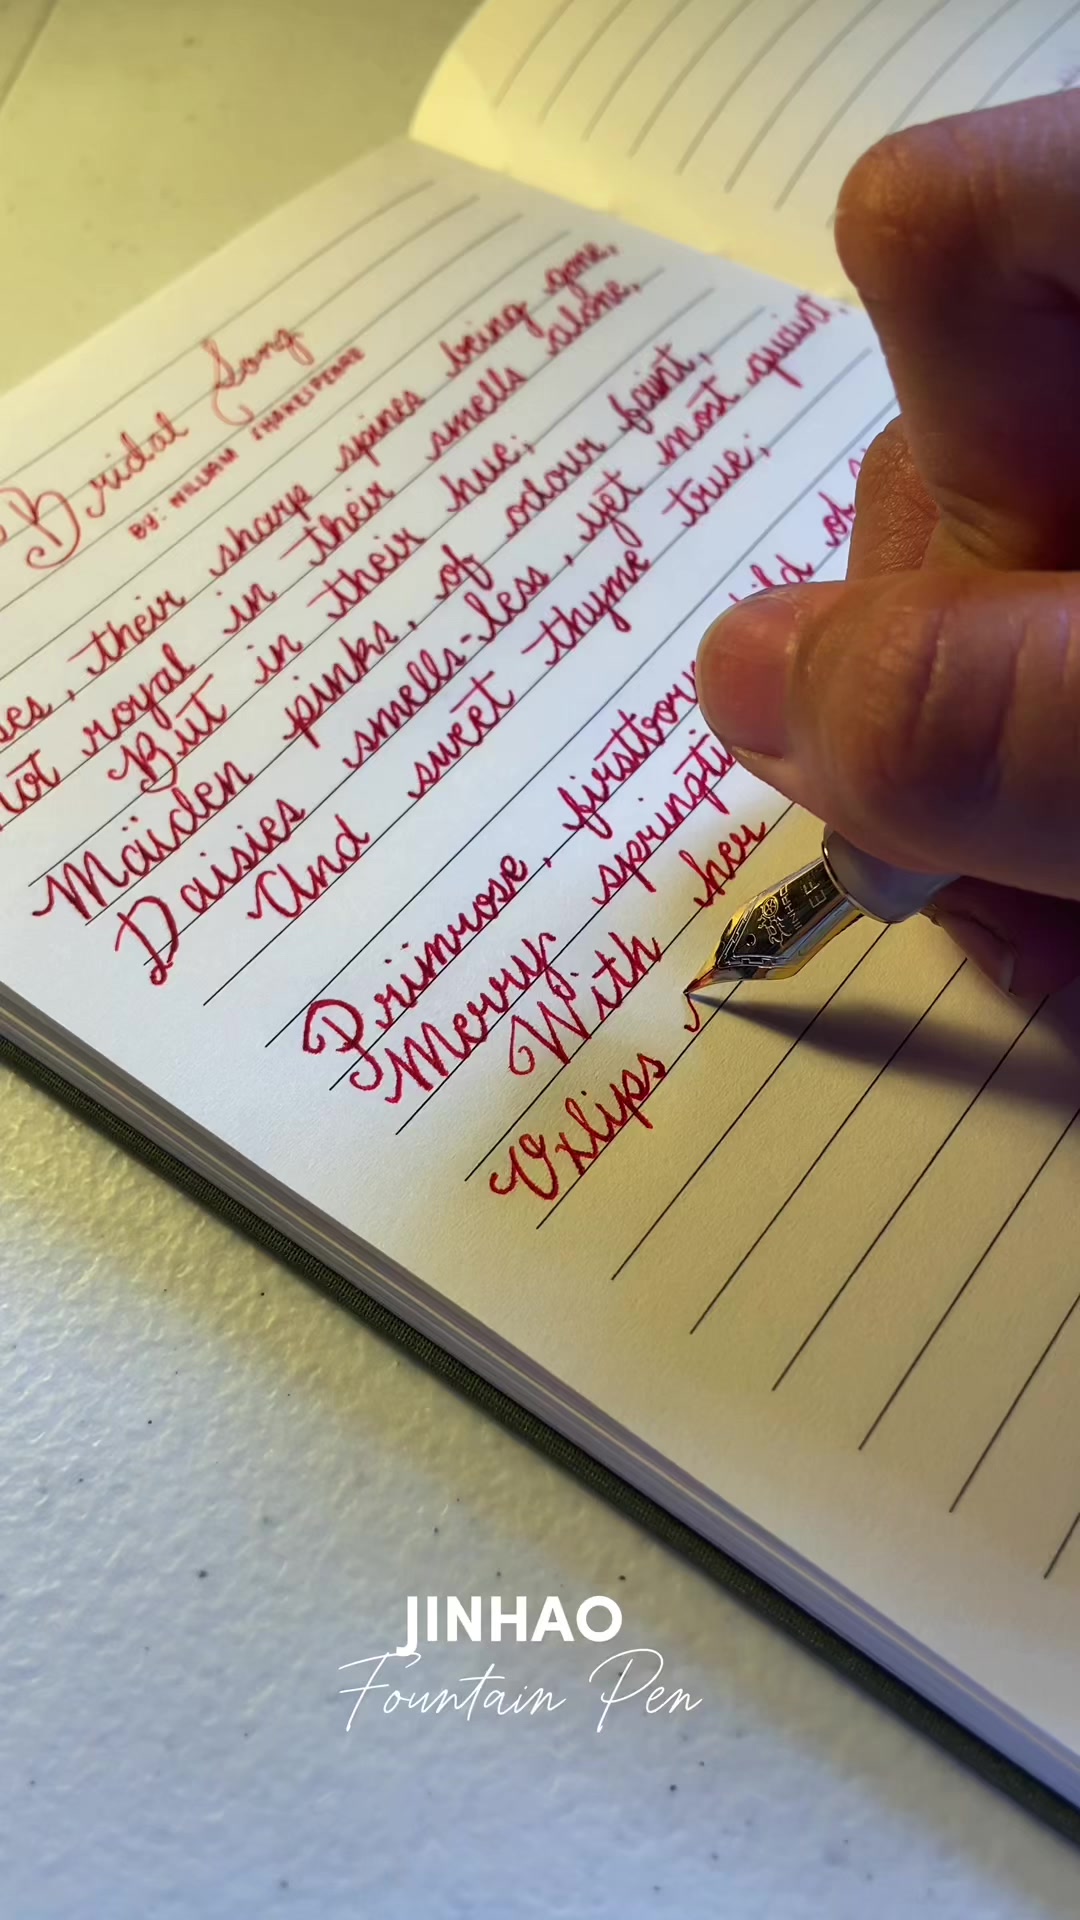 Bridal Song
BY: WILLIAM SHAKESPEARE
es, their sharp spines being gone,
Not royal in their smells alone,
But in their hue;
Maiden pinks, of odour faint,
Daisies smells-less, yet most quaint,
And sweet thyme true;
Primrose, firstbor ild of
Merry springti
With her
Oxlips
JINHAO
EF
JINHAO
Fountain Pen